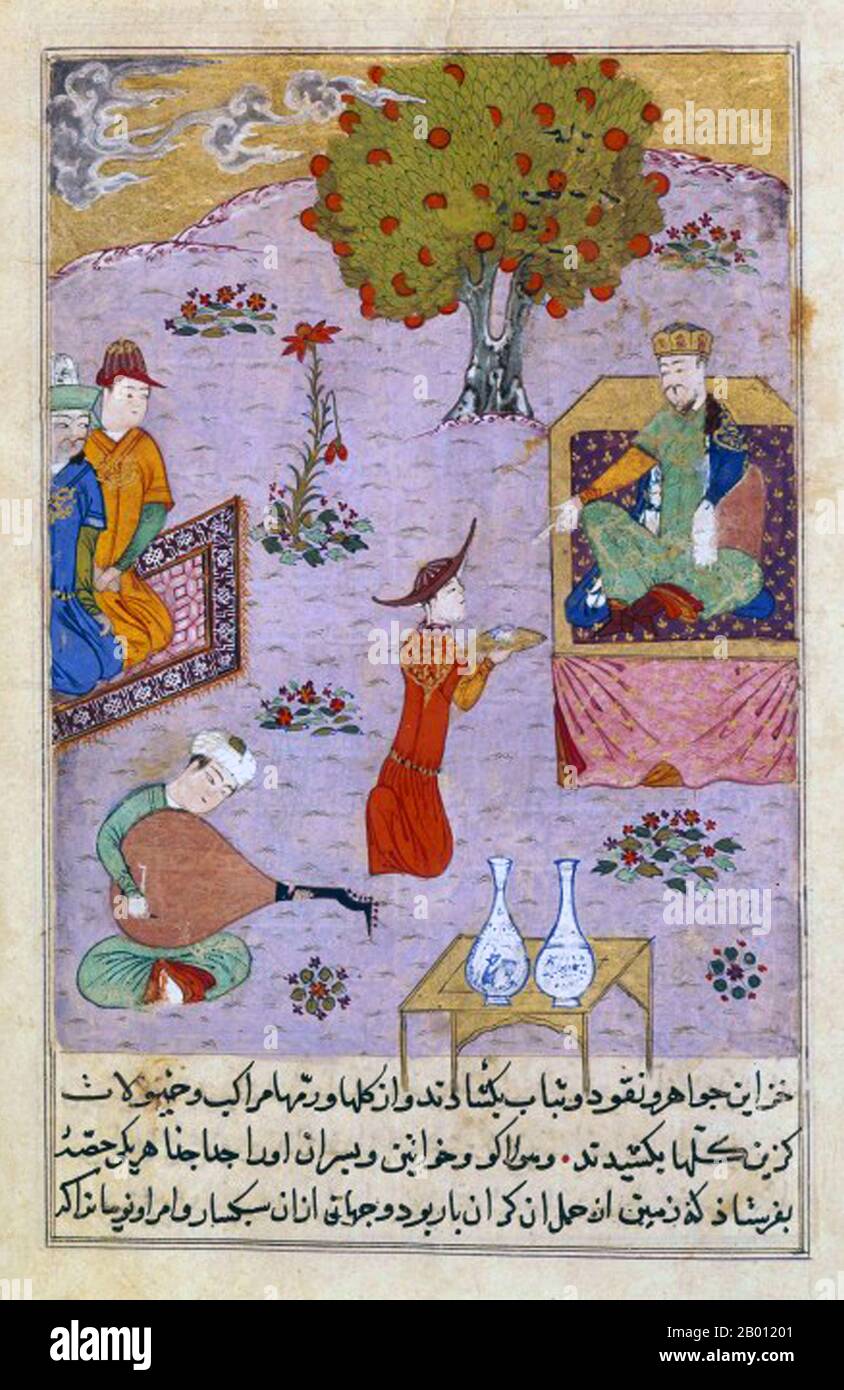 خزاین جواهر و نقود و ثیاب بگشادند و از گلها و رمها مراکب و حمولات
گزین گلها بکشیدند • و هولاکو و خواتین و پسران او را جدا جدا هر یکی حصه
بفرستاد که زمین از حمل آن گران بار بود و جهانی از آن سبکسار و امرا و نوینان را که
alamy
Image ID: 2B01201
www.alamy.com